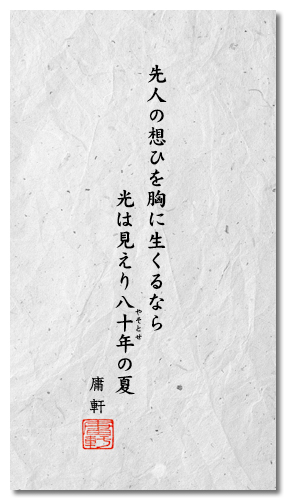 先人の想ひを胸に生くるなら
光は見えり八十年の夏
やそとせ
庸軒
庸軒